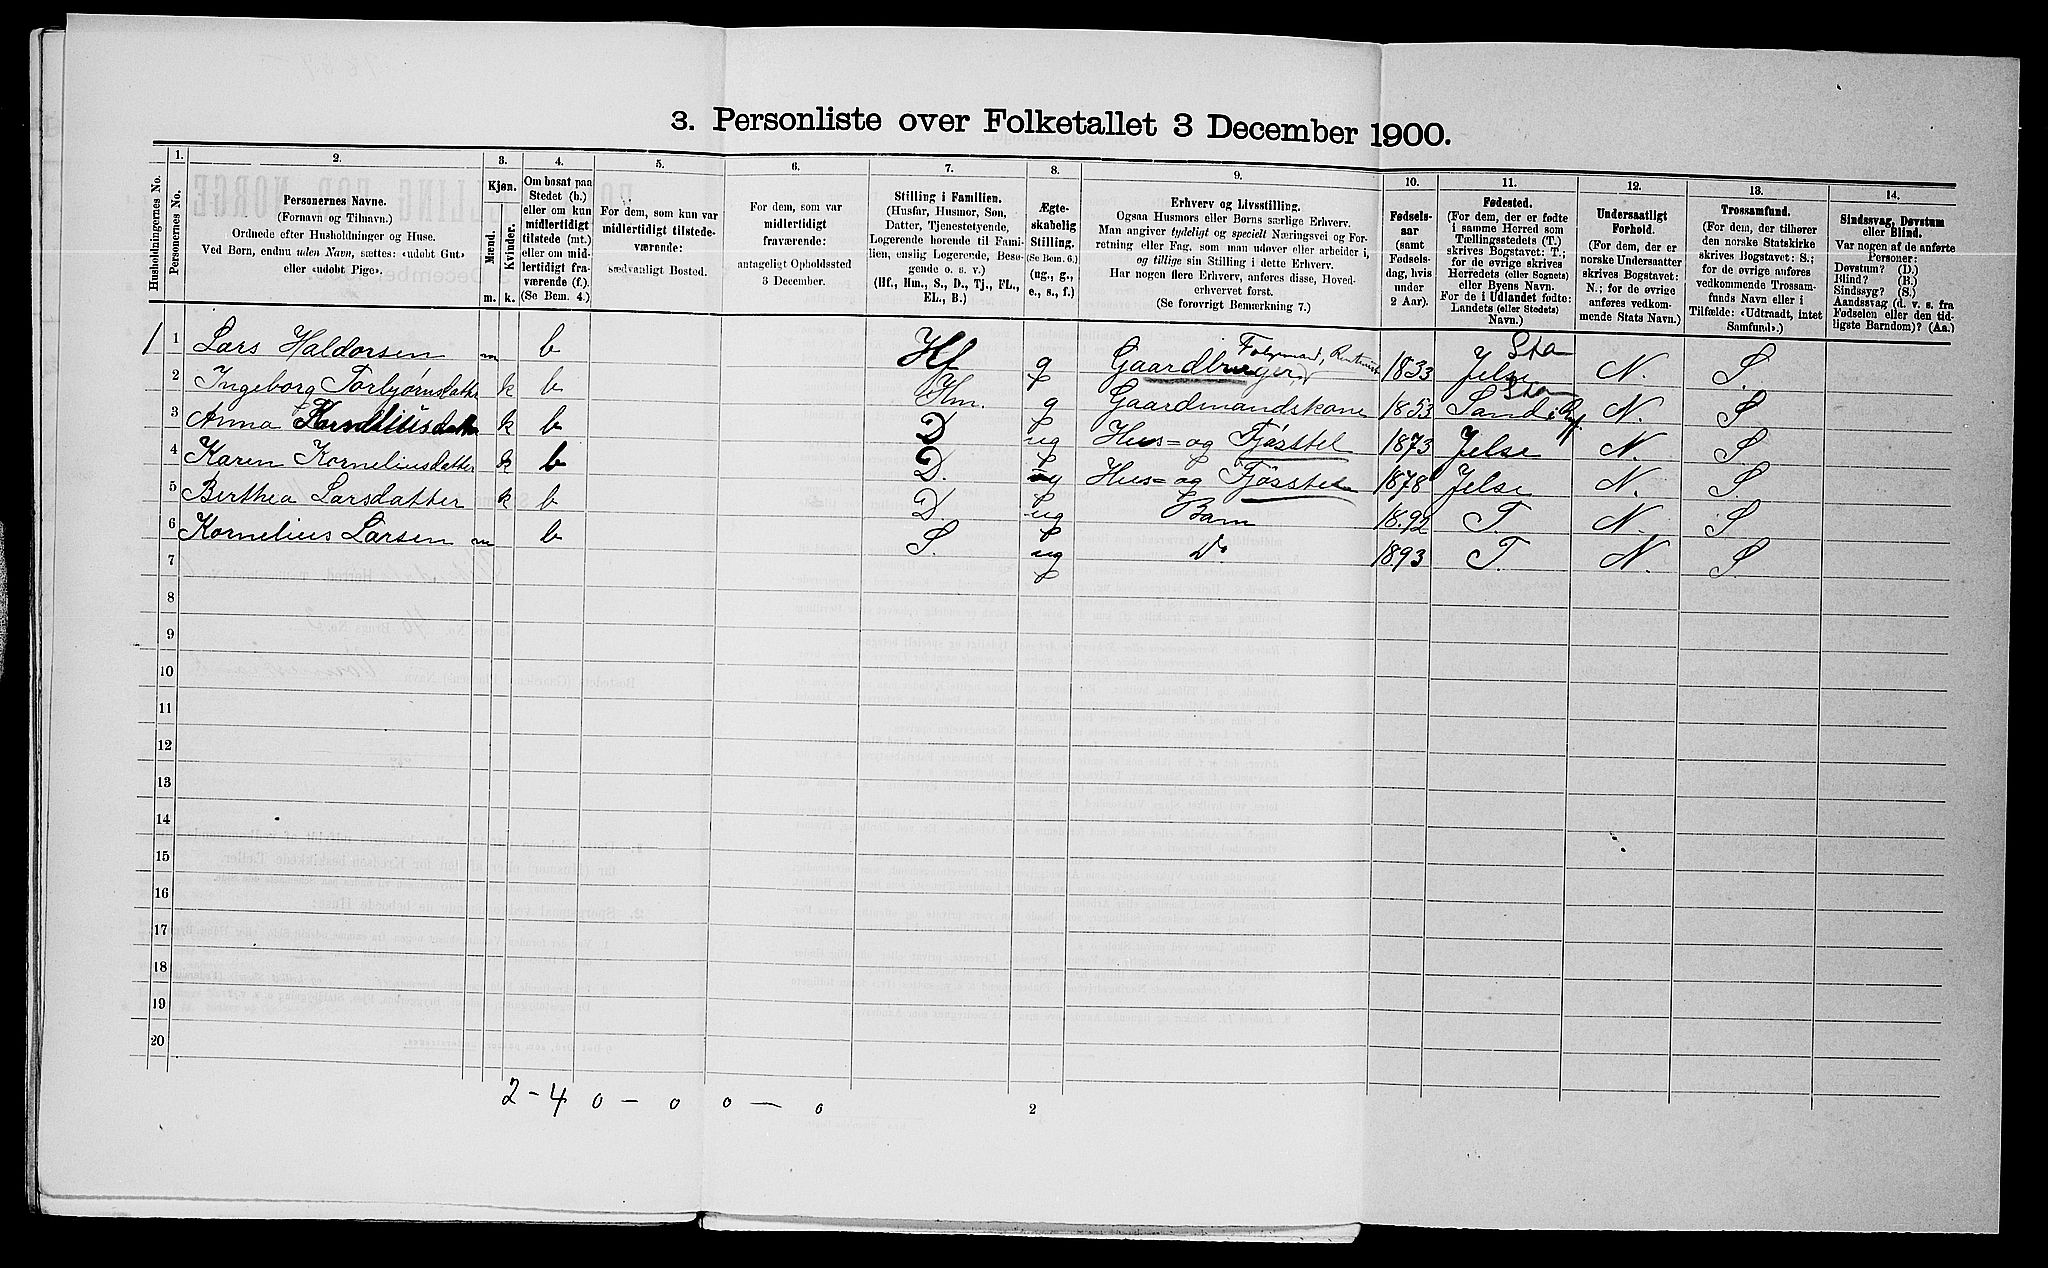 3. Personliste over Folketallet 3 December 1900.
Husholdningernes No.
1.
Personernes No.
2.
Personernes Navne.
(Fornavn og Tilnavn.)
Ordnede efter Husholdninger og Huse.
Ved Børn, endnu uden Navn, sættes: «udobt Gut»
eller «udobt Pige».
3.
Kjøn.
Mænd.
Kvinder.
m. k.
4.
Om bosat paa
Stedet (b.)
eller om kun
midlertidigt
tilstede (mt.)
eller om mid-
lertidigt fra-
værende (f.).
(Se Bem. 4.)
5.
For dem, som kun var
midlertidigt tilstede-
værende:
sædvanligt Bosted.
6.
For dem, som var
midlertidigt
fraværende:
antageligt Opholdssted
3 December.
7.
Stilling i Familien.
(Husfar, Husmor, Søn,
Datter, Tjenestetyende,
Logerende hørende til Fami-
lien, enslig Logerende, Besø-
gende o. s. v.)
(Hf., Hm., S., D., Tj., FL.,
EL., B.)
8.
Ægte-
skabelig
Stilling.
(Se Bem. 6.)
(ug., g.,
e., s., f.)
9.
Erhverv og Livsstilling.
Ogsaa Husmors eller Børns særlige Erhverv.
Man angiver tydeligt og specielt Næringsvei og For-
retning eller Fag, som man udøver eller arbeider i,
og tillige sin Stilling i dette Erhverv.
Har nogen flere Erhverv, anføres disse, Hoved-
erhvervet først.
(Se forøvrigt Bemærkning 7.)
10.
Fødsels-
aar
(samt
Fødsels-
dag, hvis
under
2 Aar).
11.
Fødested.
(For dem, der er fødte
i samme Herred som
Tællingsstedets (T.)
skrives Bogstavet: T.;
for de øvrige skrives
Herredets (eller Sognets)
eller Byens Navn.
For de i Udlandet fødte:
Landets (eller Stedets)
Navn.)
12.
Undersaatligt
Forhold.
(For dem, der er
norske Undersaatter
skrives Bogstavet:
N.; for de øvrige
anføres vedkom-
mende Stats Navn.)
13.
Trossamfund.
(For dem, der tilhører
den norske Statskirke
skrives Bogstavet: S.;
for de øvrige anføres
vedkommende Trossam-
funds Navn eller i
Tilfælde: «Udtraadt, intet
Samfund».)
14.
Sindssvag, Døvstum
eller Blind.
Var nogen af de anførte
Personer:
Døvstum? (D.)
Blind? (B.)
Sindssyg? (S.)
Aandssvag (d. v. s. fra
Fødselen eller den tid-
ligste Barndom)? (Aa.)
1 1 Lars Haldorsen m b Hf g Gaardbruger, Rentenist 1833 Jelse Sta N. S.
2 Ingeborg Torbjørnsdatter k b Hm. g Gaardmandskone 1853 Sand i Ryf. Sta N. S
3 Anna Korneliusdatter k b D ug Hus= og Fjøsstel 1873 Jelse N. S
4 Karen Korneliusdatter k b D. ug Hus= og Fjøsstel 1878 Jelse N. S.
5 Berthea Larsdatter k b D ug Barn 1892 T. N. S
6 Kornelius Larsen m b S. ug Do 1893 T. N. S.
7
8
9
10
11
12
13
14
15
16
17
18
19
20
2 - 4 0 - 0 0 - 0
2